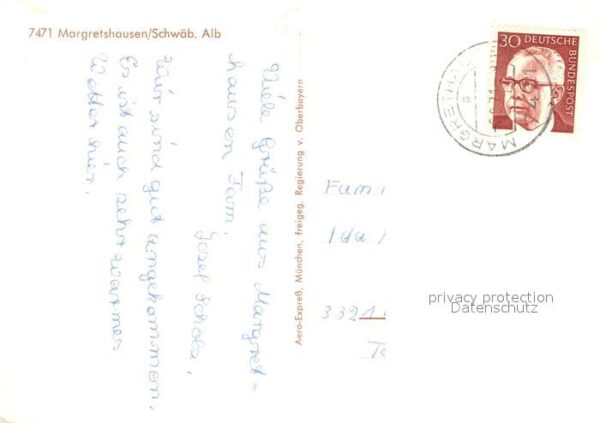 7471 Margretshausen/Schwäb. Alb
Viele Grüße aus Margret-
hausen Fam.
Josef Scholz,
Wir sind gut angekommen,
Es ist auch sehr warmes
Wetter hier.
Aero-Expreß, München, freigeg. Regierung v. Oberbayern
30 DEUTSCHE
BUNDESPOST
MARGRETH
Fam
Ida
privacy protection
Datenschutz